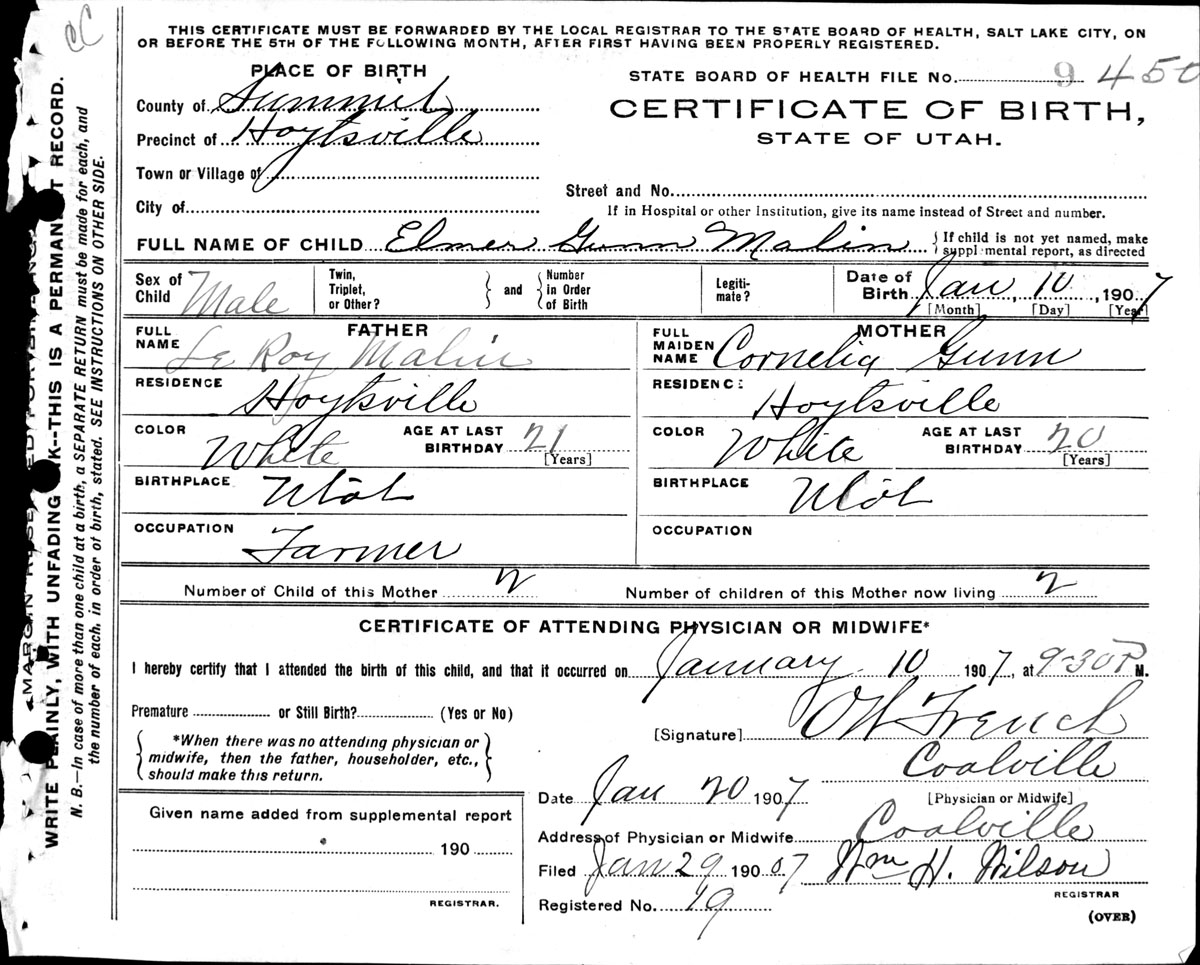 CC
THIS CERTIFICATE MUST BE FORWARDED BY THE LOCAL REGISTRAR TO THE STATE BOARD OF HEALTH, SALT LAKE CITY, ON
OR BEFORE THE 5TH OF THE FOLLOWING MONTH, AFTER FIRST HAVING BEEN PROPERLY REGISTERED.
PLACE OF BIRTH
County of Summit
Precinct of Hoytsville
Town or Village of
City of
STATE BOARD OF HEALTH FILE No. 9 450
CERTIFICATE OF BIRTH,
STATE OF UTAH.
Street and No.
If in Hospital or other Institution, give its name instead of Street and number.
FULL NAME OF CHILD Elmer Gunn Malin { If child is not yet named, make
suppl mental report, as directed
Sex of Child Male
Twin, Triplet, or Other? } and { Number in Order of Birth
Legiti-mate?
Date of Birth Jan, 10, 1907
[Month] [Day] [Year]
FATHER
FULL NAME Le Roy Malin
RESIDENCE Hoytsville
COLOR White AGE AT LAST BIRTHDAY 21 [Years]
BIRTHPLACE Utah
OCCUPATION Farmer
MOTHER
FULL MAIDEN NAME Cornelia Gunn
RESIDENCE Hoytsville
COLOR White AGE AT LAST BIRTHDAY 20 [Years]
BIRTHPLACE Utah
OCCUPATION
Number of Child of this Mother 2 Number of children of this Mother now living 2
CERTIFICATE OF ATTENDING PHYSICIAN OR MIDWIFE*
I hereby certify that I attended the birth of this child, and that it occurred on January 10 1907, at 9-30 P M.
Premature or Still Birth? (Yes or No)
*When there was no attending physician or
midwife, then the father, householder, etc.,
should make this return.
Given name added from supplemental report
190
REGISTRAR.
[Signature] OW French
Coalville
[Physician or Midwife]
Date Jan 20 1907
Address of Physician or Midwife Coalville
Filed Jan 29 190 07 Wm H. Wilson
REGISTRAR
Registered No. 19
(OVER)
WRITE PLAINLY, WITH UNFADING INK--THIS IS A PERMANENT RECORD.
N. B.—In case of more than one child at a birth, a SEPARATE RETURN must be made for each, and
the number of each, in order of birth, stated. SEE INSTRUCTIONS ON OTHER SIDE.